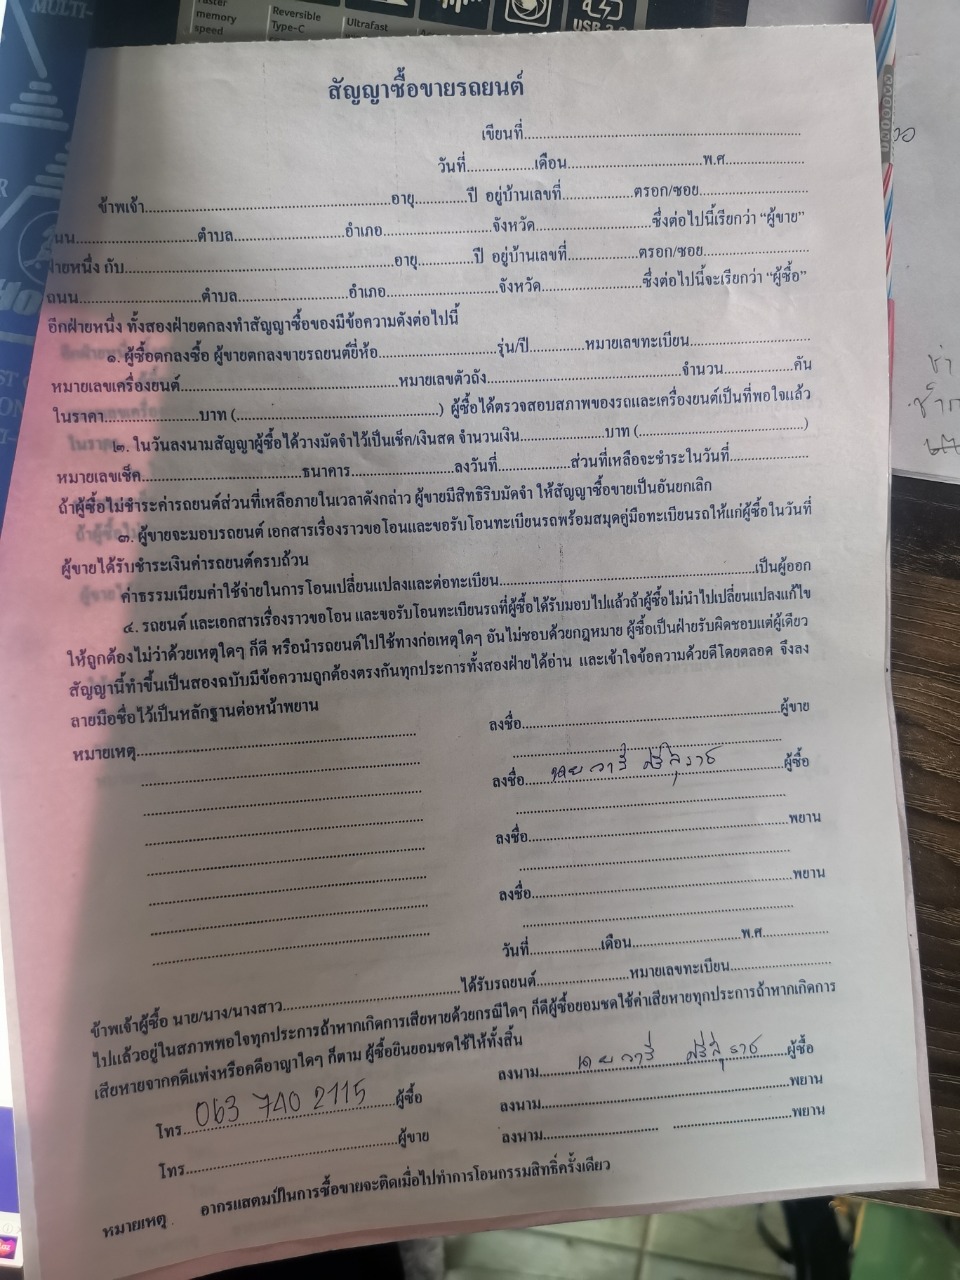 memory
speed
Reversible
Type-C
Ultrafast
USB 2.0
MULTI-
สัญญาซื้อขายรถยนต์
เขียนที่..........
วันที่..........เดือน..........พ.ศ..........
ข้าพเจ้า..........อายุ..........ปี อยู่บ้านเลขที่..........ตรอก/ซอย..........
นน..........ตำบล..........อำเภอ..........จังหวัด..........ซึ่งต่อไปนี้เรียกว่า “ผู้ขาย”
ฝ่ายหนึ่ง กับ..........อายุ..........ปี อยู่บ้านเลขที่..........ตรอก/ซอย..........
ถนน..........ตำบล..........อำเภอ..........จังหวัด..........ซึ่งต่อไปนี้จะเรียกว่า “ผู้ซื้อ”
อีกฝ่ายหนึ่ง ทั้งสองฝ่ายตกลงทำสัญญาซื้อของมีข้อความดังต่อไปนี้
๑. ผู้ซื้อตกลงซื้อ ผู้ขายตกลงขายรถยนต์ยี่ห้อ..........รุ่น/ปี..........หมายเลขทะเบียน..........
หมายเลขเครื่องยนต์..........หมายเลขตัวถัง..........จำนวน..........คัน
ในราคา..........บาท (..........) ผู้ซื้อได้ตรวจสอบสภาพของรถและเครื่องยนต์เป็นที่พอใจแล้ว
๒. ในวันลงนามสัญญาผู้ซื้อได้วางมัดจำไว้เป็นเช็ค/เงินสด จำนวนเงิน..........บาท (..........)
หมายเลขเช็ค..........ธนาคาร..........ลงวันที่..........ส่วนที่เหลือจะชำระในวันที่..........
ถ้าผู้ซื้อไม่ชำระค่ารถยนต์ส่วนที่เหลือภายในเวลาดังกล่าว ผู้ขายมีสิทธิริบมัดจำ ให้สัญญาซื้อขายเป็นอันยกเลิก
๓. ผู้ขายจะมอบรถยนต์ เอกสารเรื่องราวขอโอนและขอรับโอนทะเบียนรถพร้อมสมุดคู่มือทะเบียนรถให้แก่ผู้ซื้อในวันที่
ผู้ขายได้รับชำระเงินค่ารถยนต์ครบถ้วน
ค่าธรรมเนียมค่าใช้จ่ายในการโอนเปลี่ยนแปลงและต่อทะเบียน..........เป็นผู้ออก
๔. รถยนต์ และเอกสารเรื่องราวขอโอน และขอรับโอนทะเบียนรถที่ผู้ซื้อได้รับมอบไปแล้วถ้าผู้ซื้อไม่นำไปเปลี่ยนแปลงแก้ไข
ให้ถูกต้องไม่ว่าด้วยเหตุใดๆ ก็ดี หรือนำรถยนต์ไปใช้ทางก่อเหตุใดๆ อันไม่ชอบด้วยกฎหมาย ผู้ซื้อเป็นฝ่ายรับผิดชอบแต่ผู้เดียว
สัญญานี้ทำขึ้นเป็นสองฉบับมีข้อความถูกต้องตรงกันทุกประการทั้งสองฝ่ายได้อ่าน และเข้าใจข้อความด้วยดีโดยตลอด จึงลง
ลายมือชื่อไว้เป็นหลักฐานต่อหน้าพยาน
หมายเหตุ..........
ลงชื่อ..........ผู้ขาย
ลงชื่อ นาย อารี ศรีสุราช ผู้ซื้อ
ลงชื่อ..........พยาน
ลงชื่อ..........พยาน
วันที่..........เดือน..........พ.ศ..........
ข้าพเจ้าผู้ซื้อ นาย/นาง/นางสาว..........ได้รับรถยนต์..........หมายเลขทะเบียน..........
ไปแล้วอยู่ในสภาพพอใจทุกประการถ้าหากเกิดการเสียหายด้วยกรณีใดๆ ก็ดีผู้ซื้อยอมชดใช้ค่าเสียหายทุกประการถ้าหากเกิดการ
เสียหายจากคดีแพ่งหรือคดีอาญาใดๆ ก็ตาม ผู้ซื้อยินยอมชดใช้ให้ทั้งสิ้น
ลงนาม นาย อารี ศรีสุราช ผู้ซื้อ
โทร 063 740 2115 ผู้ซื้อ
ลงนาม..........พยาน
โทร..........ผู้ขาย
ลงนาม.......... ..........พยาน
หมายเหตุ อากรแสตมป์ในการซื้อขายจะติดเมื่อไปทำการโอนกรรมสิทธิ์ครั้งเดียว